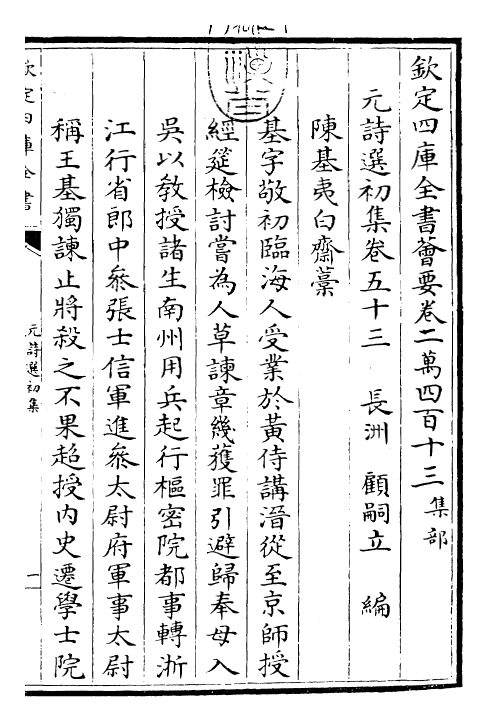 欽定四庫全書薈要卷二萬四百十三 集部
元詩選初集卷五十三 長洲 顧嗣立 編
陳基夷白齋藁
基字敬初臨海人受業於黃侍講溍從至京師授
經筵檢討嘗為人草諫章幾獲罪引避歸奉母入
吳以教授諸生南州用兵起行樞密院都事轉浙
江行省郎中叅張士信軍進叅太尉府軍事太尉
稱王基獨諫止將殺之不果超授内史遷學士院
欽定四庫全書
元詩選初集
一